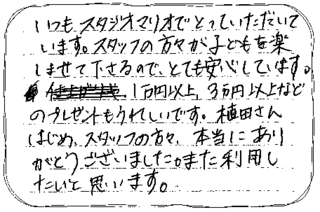 いつも、スタジオマリオでとっていただいて
います。スタッフの方々が子どもを楽
しませて下さるので、とても安心しています。
1万円以上、3万円以上など
のプレゼントもうれしいです。植田さん
はじめ、スタッフの方々、本当にあり
がとうございました。また利用し
たいと思います。